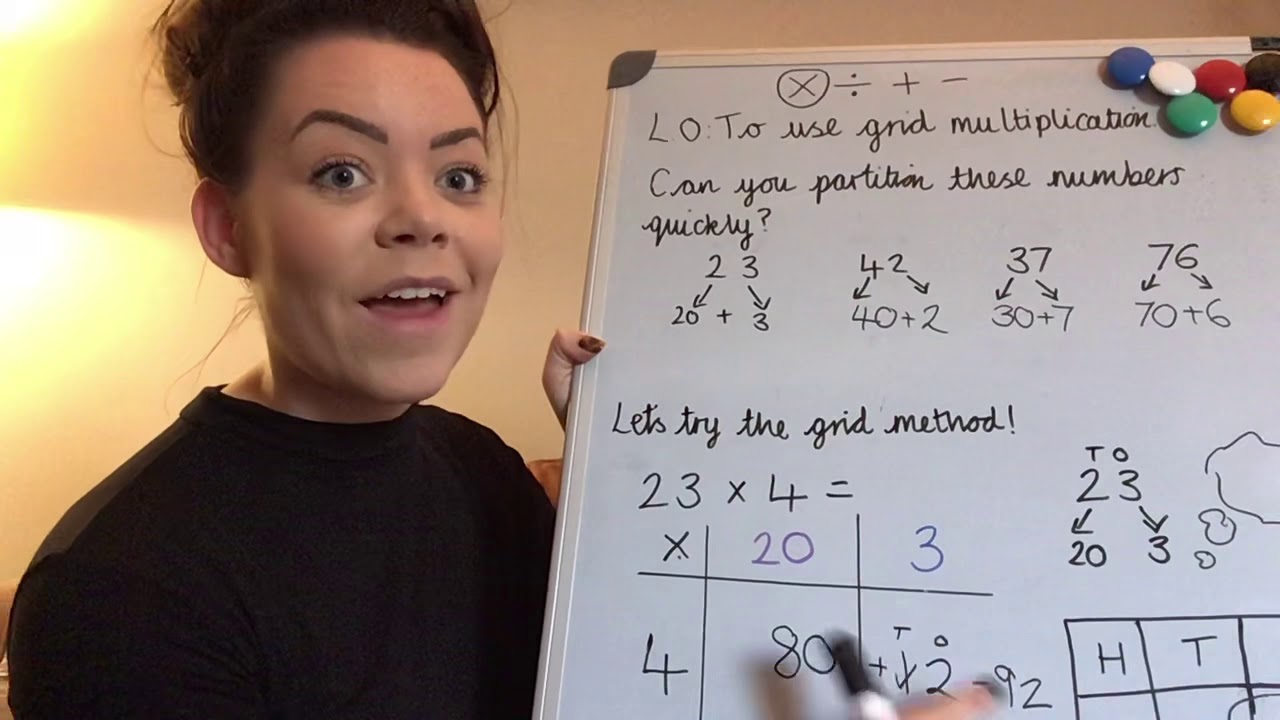 × ÷ + −
L.O: To use grid multiplication
Can you partition these numbers
quickly?
23 42 37 76
20 + 3 40+2 30+7 70+6
Let's try the grid method!
T O
23
20 3
23 × 4 =
× 20 3
T O
4 80 + 12 = 92
H T